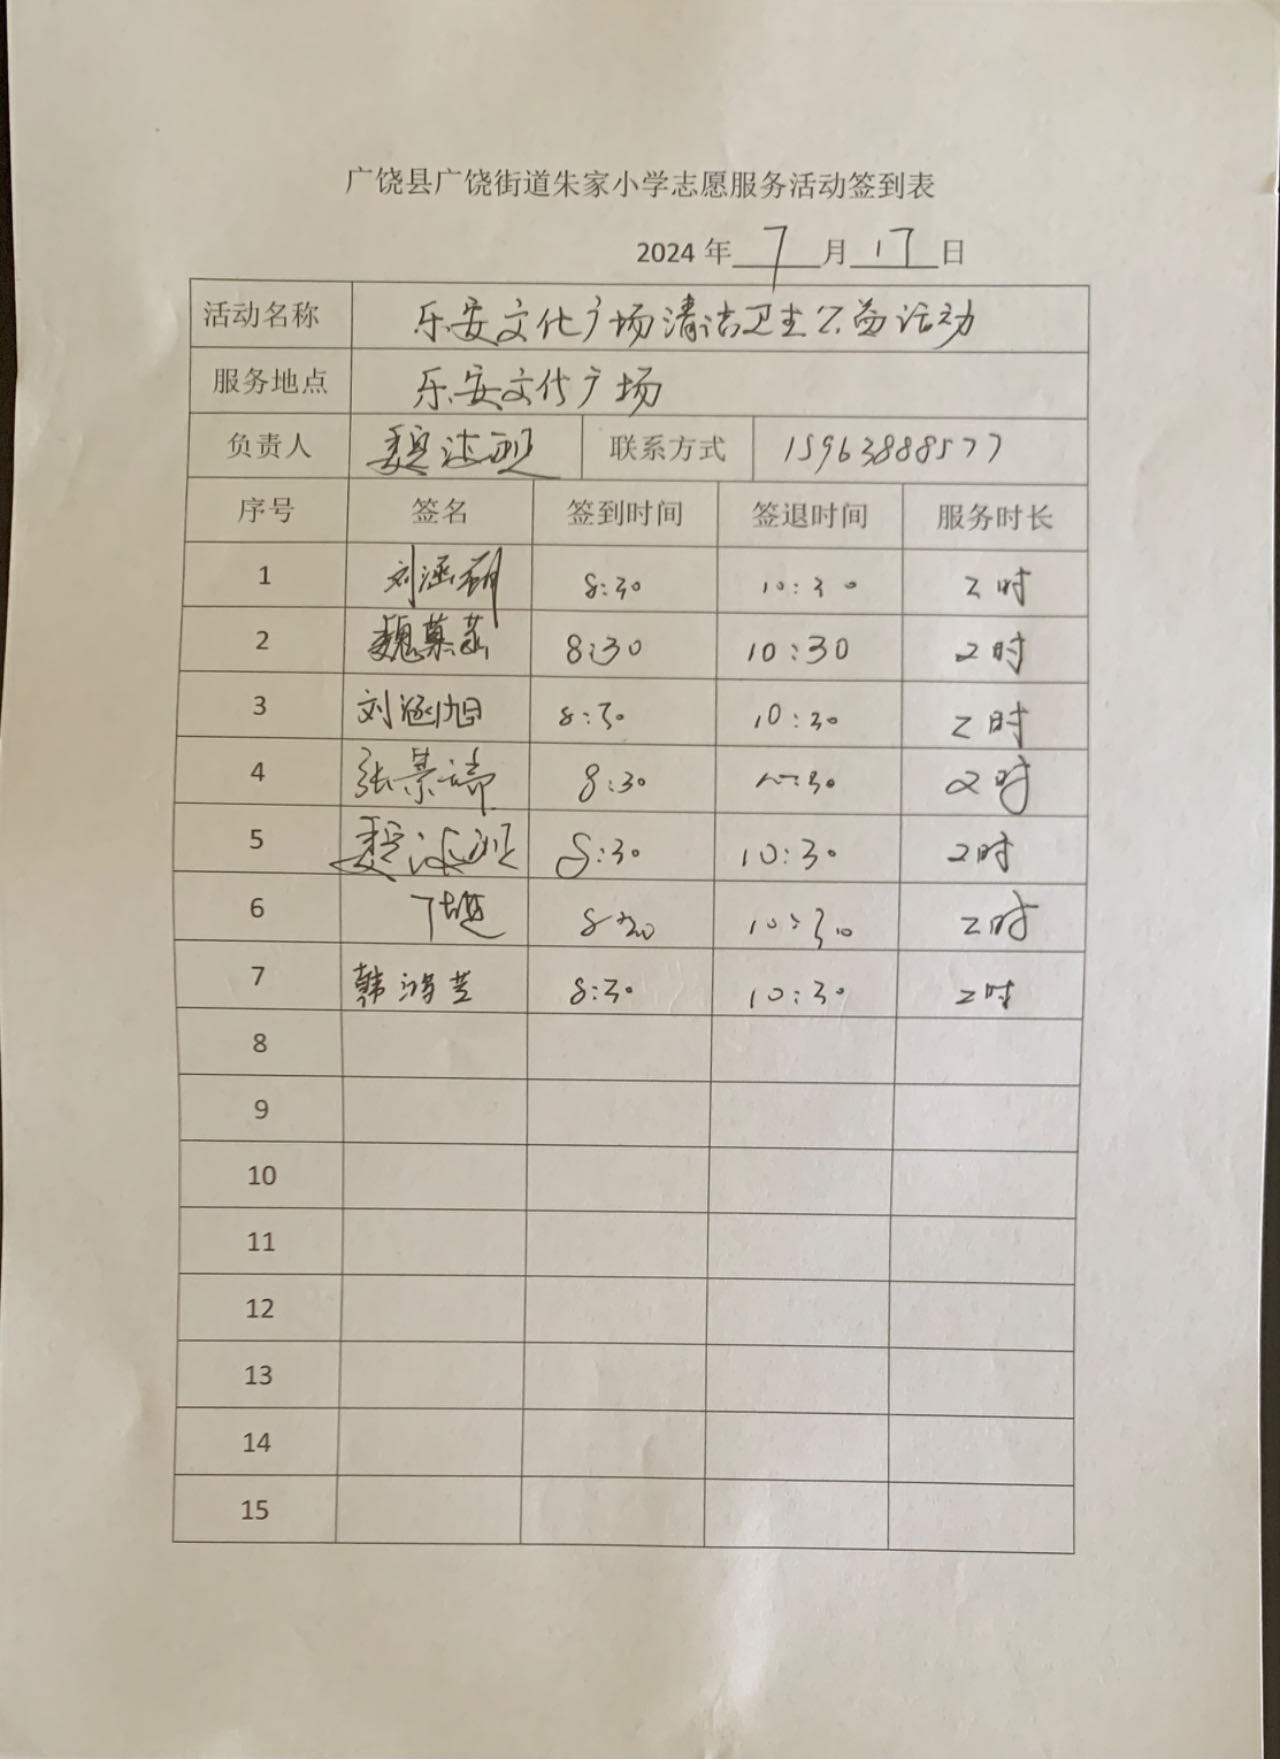 广饶县广饶街道朱家小学志愿服务活动签到表
2024 年 7 月 17 日
活动名称 乐安文化广场清洁卫生公益活动
服务地点 乐安文化广场
负责人 联系方式 15963888577
序号 签名 签到时间 签退时间 服务时长
1 刘涵朔 8:30 10:30 2时
2 魏慕菡 8:30 10:30 2时
3 刘涵旭 8:30 10:30 2时
4 张景瑞 8:30 10:30 2时
5 8:30 10:30 2时
6 8:30 10:30 2时
7 韩 8:30 10:30 2时
8
9
10
11
12
13
14
15